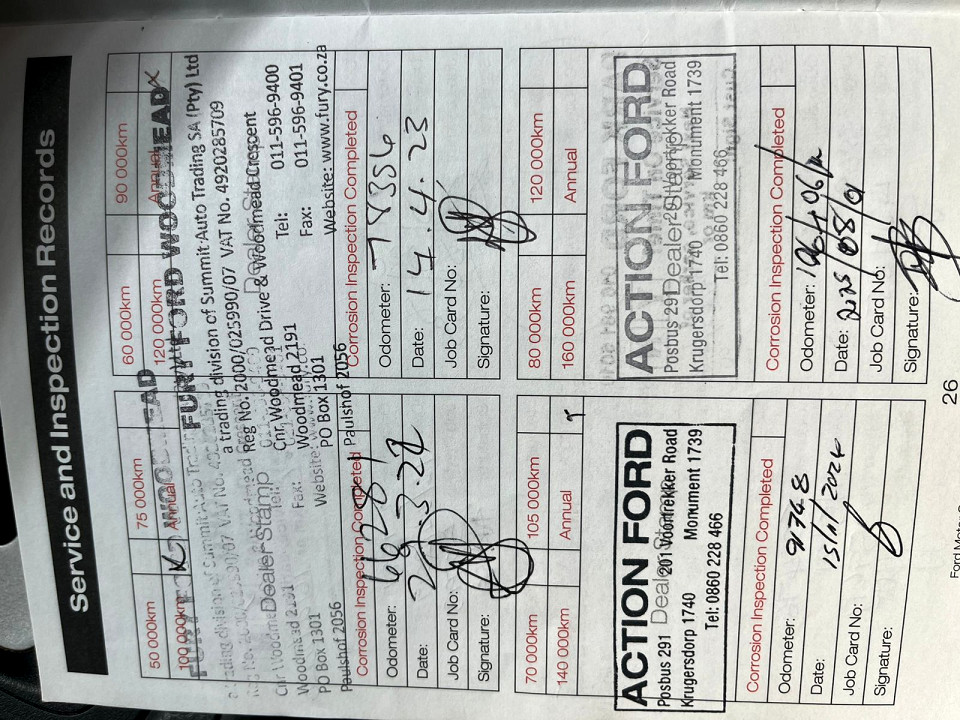 Service and Inspection Records
50 000km
75 000km
100 000km
Annual
FURY FORD WOODMEAD
a trading division of Summit Auto Trading
Dealer Stamp
Cnr Woodmead
Woodmead 2191
Tel:
Fax:
PO Box 1301
Website
Paulshof 2056
Corrosion Inspection Completed
Odometer: 66281
Date:
Job Card No:
Signature:
60 000km
90 000km
120 000km
Annual X
FURY FORD WOODMEAD
a trading division of Summit Auto Trading SA (Pty) Ltd
Reg No. 2000/025990/07 VAT No. 4920285709
Dealer Stamp
Cnr Woodmead Drive & Woodmead Crescent
Woodmead 2191
Tel: 011-596-9400
PO Box 1301
Fax: 011-596-9401
Paulshof 2056
Website: www.fury.co.za
Corrosion Inspection Completed
Odometer: 78356
Date: 14.4.23
Job Card No:
Signature:
70 000km
105 000km
140 000km
Annual
ACTION FORD
Dealer Stamp
Posbus 291 201 Voortrekker Road
Krugersdorp 1740 Monument 1739
Tel: 0860 228 466
Corrosion Inspection Completed
Odometer: 91748
Date: 15/11/2024
Job Card No:
Signature:
80 000km
120 000km
160 000km
Annual
ACTION FORD
Dealer Stamp
Posbus 291 201 Voortrekker Road
Krugersdorp 1740 Monument 1739
Tel: 0860 228 466
Corrosion Inspection Completed
Odometer:
Date: 2025/08/01
Job Card No:
Signature:
26